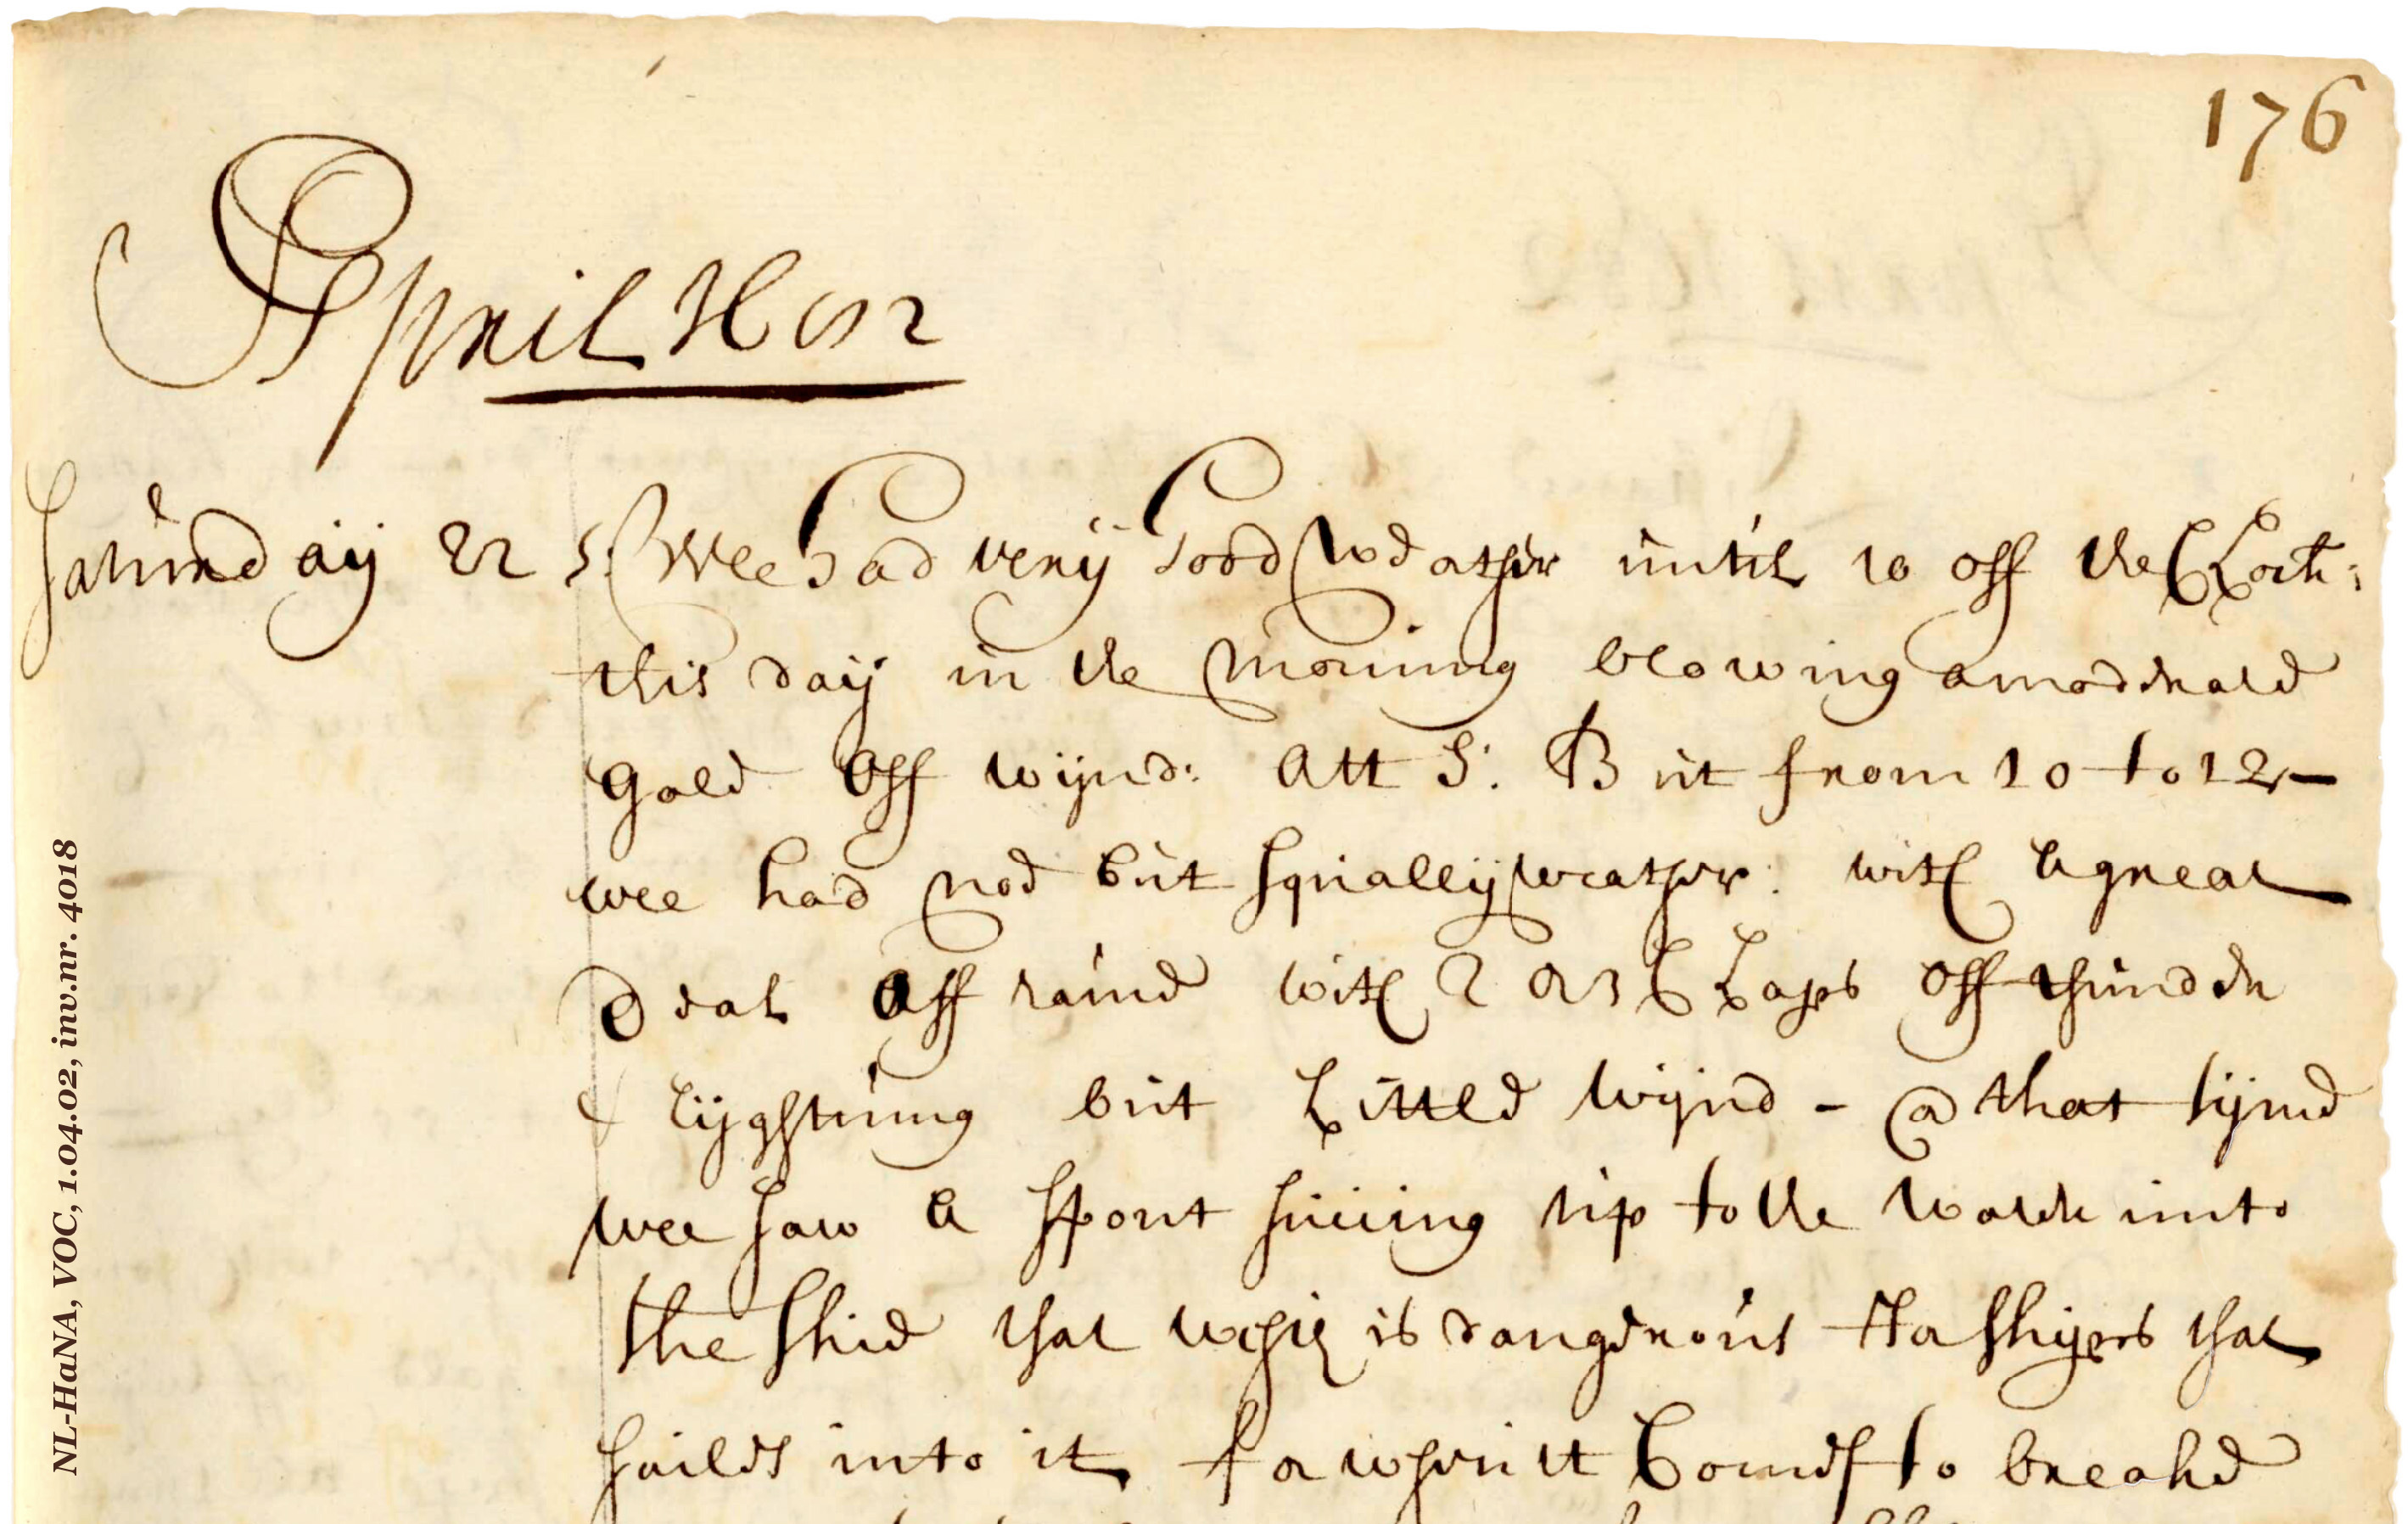 176
April 1652
Saturday 22 S: Wee had very good weather untill 10 off the Clock:
this day in the morning blowing a moderate
gale off wynd: att S: But from 10 to 12 –
wee had not but squally weather: with a great
deal off raine with 2 or 3 Claps off thunder
& lyghtning but Little wynd – @ that tyme
wee saw a spout suicing up to the water into
the skie that which is dangerous ffor shipes that
sailes into it for when itt Comes to breake
NL-HaNA, VOC, 1.04.02, inv.nr. 4018